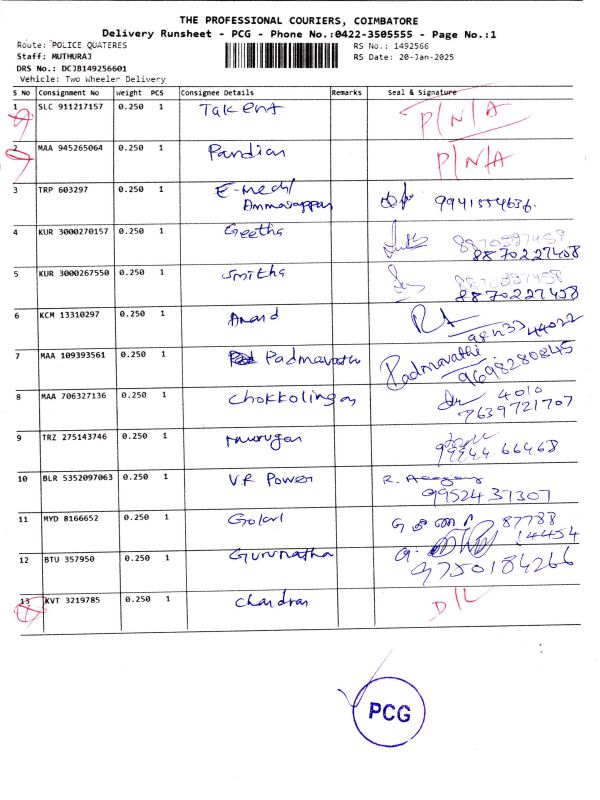 THE PROFESSIONAL COURIERS, COIMBATORE
Delivery Runsheet - PCG - Phone No.:0422-3505555 - Page No.:1
Route: POLICE QUATERES RS No.: 1492566
Staff: MUTHURAJ RS Date: 20-Jan-2025
DRS No.: DCJB149256601
Vehicle: Two Wheeler Delivery
S No Consignment No Weight PCS Consignee Details Remarks Seal & Signature
1 SLC 911217157 0.250 1 Takent P/N/A
2 MAA 945265064 0.250 1 Pandian P/N/A
3 TRP 603297 0.250 1 E-medl
Ammasappan 9941554636.
4 KUR 3000270157 0.250 1 Geetha 8870227458
8870227458
5 KUR 3000267550 0.250 1 Smitha 8870227458
8870227458
6 KCM 13310297 0.250 1 Anand
7 MAA 109393561 0.250 1 Padmavathi Padmavathi
9698280845
8 MAA 706327136 0.250 1 Chokkolingam 4010
7639721707
9 TRZ 275143746 0.250 1 murugan 99944 66468
10 BLR 5352097063 0.250 1 V.R Power R.
99524 37307
11 MYD 8166652 0.250 1 Gokul 87788
14454
12 BTU 357950 0.250 1 Gurunatha 9750184266
13 KVT 3219785 0.250 1 Chandran D/L
PCG